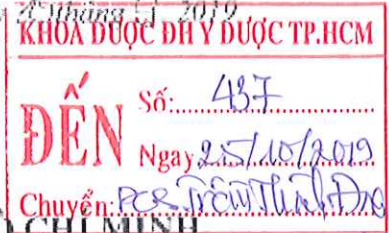 tháng 2019
KHOA DƯỢC ĐH Y DƯỢC TP.HCM
ĐẾN
Số: 437
Ngày 25/10/2019
Chuyển: PGS. Trần Thành Đạo
CHÍ MINH